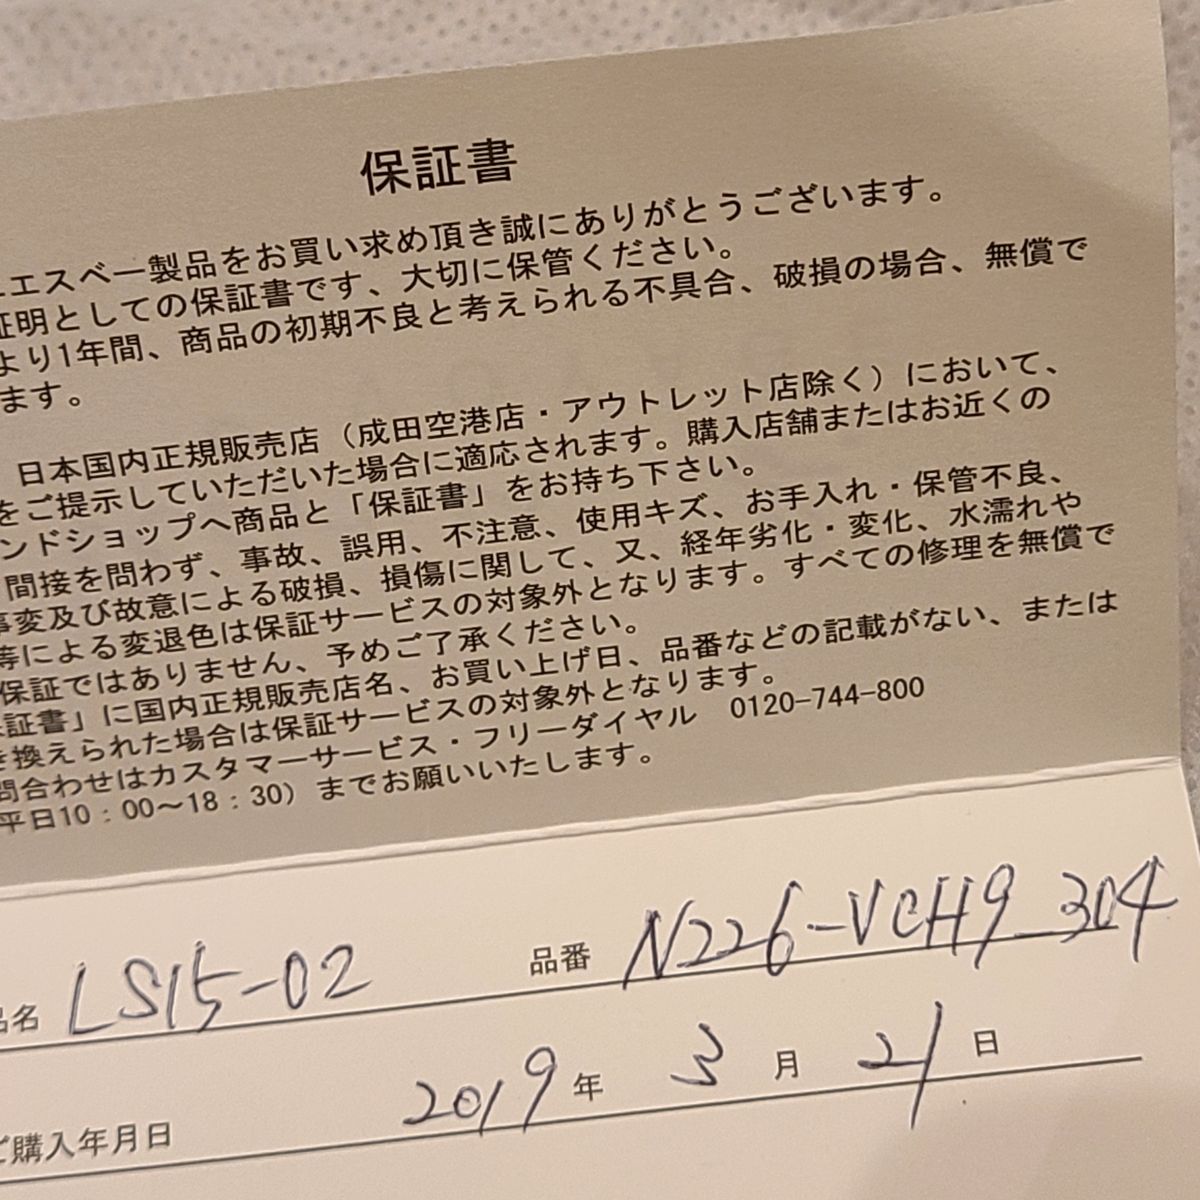 保証書
ユエスベー製品をお買い求め頂き誠にありがとうございます。
証明としての保証書です、大切に保管ください。
より1年間、商品の初期不良と考えられる不具合、破損の場合、無償で
ます。
日本国内正規販売店（成田空港店・アウトレット店除く）において、
をご提示していただいた場合に適応されます。購入店舗またはお近くの
ンドショップへ商品と「保証書」をお持ち下さい。
間接を問わず、事故、誤用、不注意、使用キズ、お手入れ・保管不良、
事変及び故意による破損、損傷に関して、又、経年劣化・変化、水濡れや
等による変退色は保証サービスの対象外となります。すべての修理を無償で
保証ではありません、予めご了承ください。
証書」に国内正規販売店名、お買い上げ日、品番などの記載がない、または
き換えられた場合は保証サービスの対象外となります。
問合わせはカスタマーサービス・フリーダイヤル 0120-744-800
平日10：00〜18：30）までお願いいたします。
品名 LS15-02 品番 N226-VCH9_304
ご購入年月日 2019 年 3 月 21 日